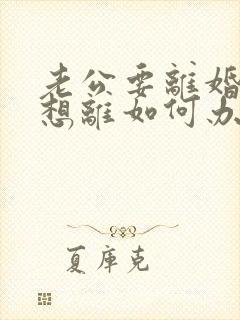 老公要離婚
想離如何办
夏庫克